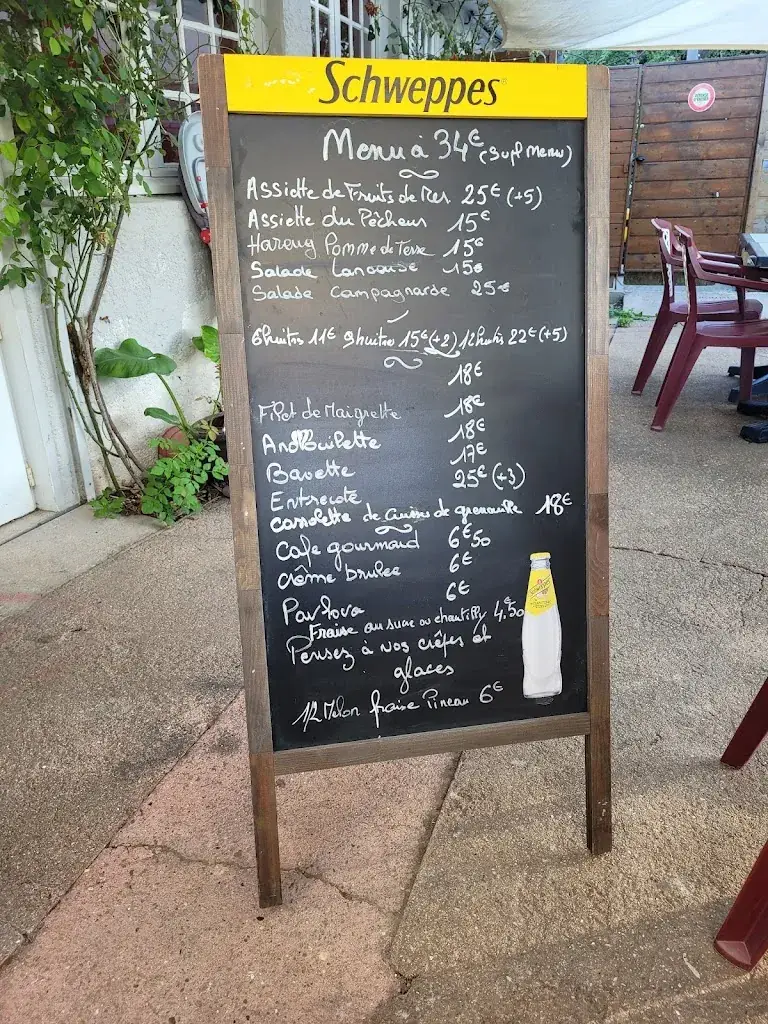 Schweppes
Menu à 34€ (supl menu)
Assiette de Fruits de Mer 25€ (+5)
Assiette du Pêcheur 15€
Hareng Pomme de Terre 15€
Salade Landaise 15€
Salade Campagnarde 25€
6 huitres 11€ 9 huitres 15€ (+2) 12 huitres 22€ (+5)
18€
Filet de Maigrette 18€
Andouilette 18€
Bavette 17€
Entrecote 25€ (+3)
Cassolette de cuisses de grenouille 18€
Café gourmand 6€50
Crème brulee 6€
Pavlova 6€
Fraise au sucre ou chantilly 4,50€
Pensez à nos crêpes et
glaces
1/2 Melon fraise Pineau 6€